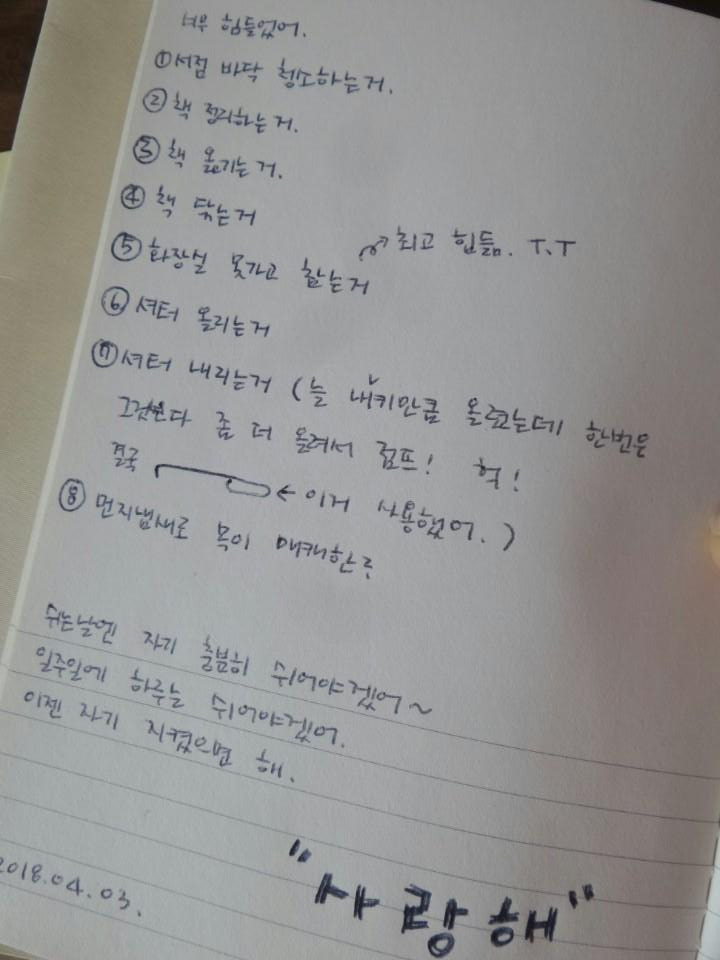 너무 힘들었어.
① 서점 바닥 청소하는거.
② 책 정리하는거.
③ 책 옮기는거.
④ 책 닦는거
→ 최고 힘듦. T.T
⑤ 화장실 못가고 참는거
⑥ 셔터 올리는거
⑦ 셔터 내리는거 (늘 내키만큼 올렸는데 한번은
그것보다 좀 더 올려서 점프! 헉!
결국 ← 이거 사용했어.)
⑧ 먼지냄새로 목이 매캐한거
쉬는날엔 자기 충분히 쉬어야겠어~
일주일에 하루는 쉬어야겠어.
이젠 자기 지켰으면 해.
"사랑해"
2018.04.03.